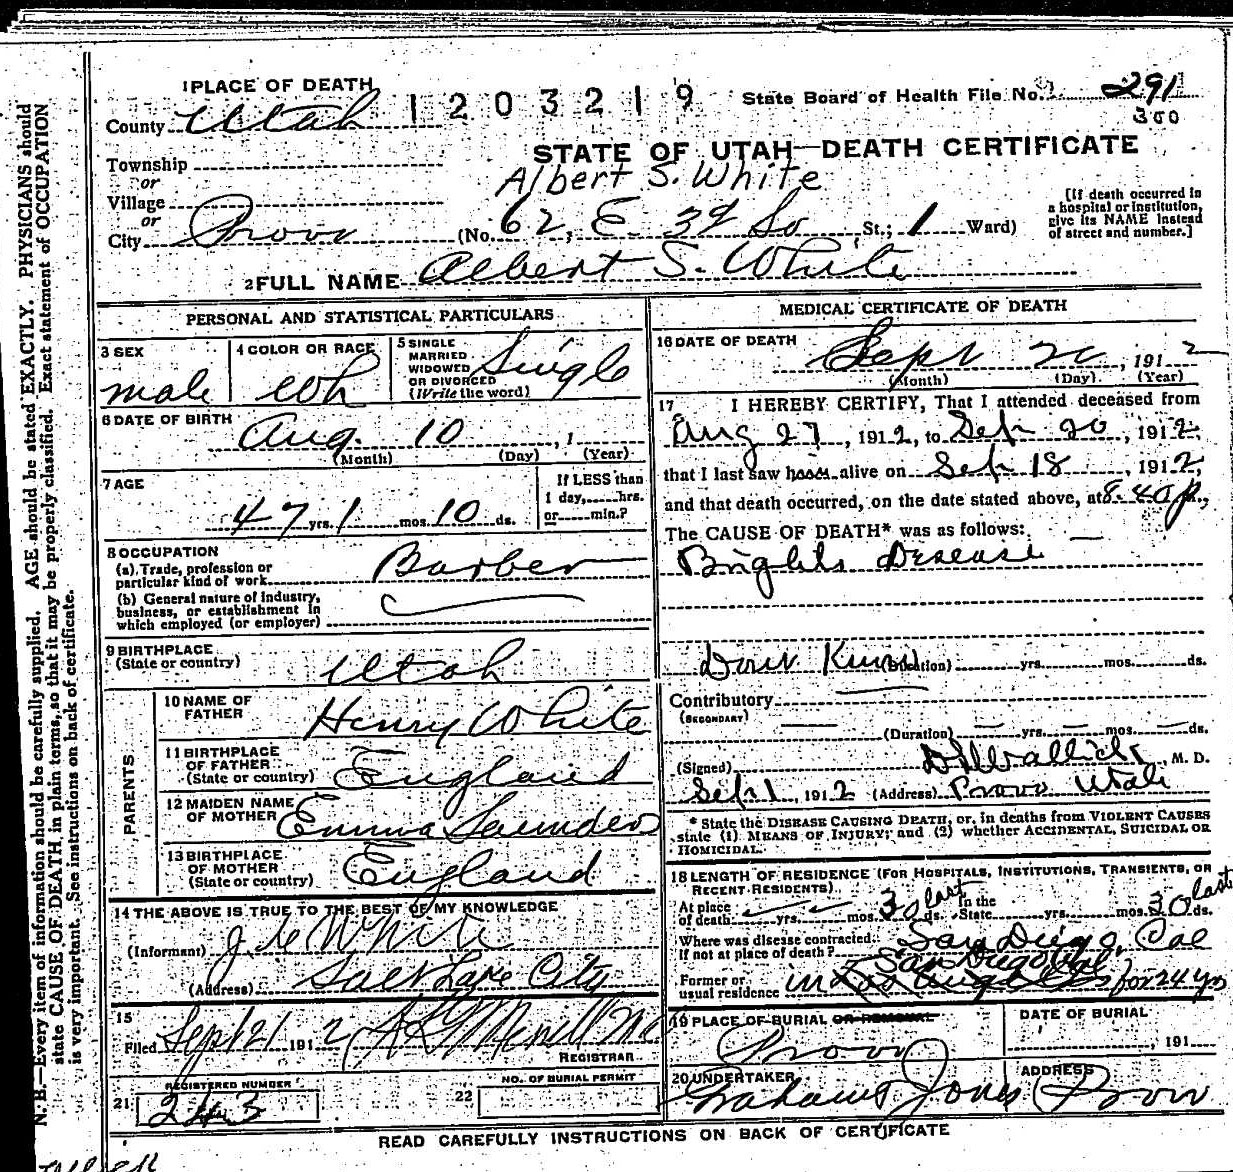 N. B.—Every item of information should be carefully supplied. AGE should be stated EXACTLY. PHYSICIANS should
state CAUSE OF DEATH in plain terms, so that it may be properly classified. Exact statement of OCCUPATION
is very important. See instructions on back of certificate.
1 PLACE OF DEATH
1203219
State Board of Health File No. 291
300
County Utah
STATE OF UTAH—DEATH CERTIFICATE
Township
Albert S. White
or
Village
or
City Provo (No. 62, E. 3d So St.; 1 Ward)
[If death occurred in
a hospital or institution,
give its NAME instead
of street and number.]
2 FULL NAME Albert S. White
PERSONAL AND STATISTICAL PARTICULARS
3 SEX
male
4 COLOR OR RACE
Wh
5 SINGLE
MARRIED
WIDOWED
OR DIVORCED
(Write the word)
Single
6 DATE OF BIRTH
Aug. 10, 1
(Month) (Day) (Year)
7 AGE
47 yrs. 1 mos. 10 ds.
If LESS than
1 day, hrs.
or min.?
8 OCCUPATION
(a) Trade, profession or
particular kind of work Barber
(b) General nature of industry,
business, or establishment in
which employed (or employer)
9 BIRTHPLACE
(State or country) Utah
PARENTS
10 NAME OF
FATHER Henry White
11 BIRTHPLACE
OF FATHER
(State or country) England
12 MAIDEN NAME
OF MOTHER Emma Saunders
13 BIRTHPLACE
OF MOTHER
(State or country) England
14 THE ABOVE IS TRUE TO THE BEST OF MY KNOWLEDGE
(Informant) White
(Address) Salt Lake City
15
Filed Sept 21 1912
REGISTRAR
REGISTERED NUMBER
21 243
NO. OF BURIAL PERMIT
22
MEDICAL CERTIFICATE OF DEATH
16 DATE OF DEATH
Sept 20, 1912
(Month) (Day) (Year)
17 I HEREBY CERTIFY, That I attended deceased from
Aug 27, 1912, to Sep 20, 1912,
that I last saw alive on Sep 18, 1912,
and that death occurred, on the date stated above, at 8.40 p.,
The CAUSE OF DEATH* was as follows:
Brights Desease
Dont Know (Duration) yrs. mos. ds.
Contributory
(SECONDARY)
(Duration) yrs. mos. ds.
(Signed) M. D.
Sep 1, 1912 (Address) Provo Utah
* State the DISEASE CAUSING DEATH, or, in deaths from VIOLENT CAUSES
state (1) MEANS OF INJURY; and (2) whether ACCIDENTAL, SUICIDAL OR
HOMICIDAL.
18 LENGTH OF RESIDENCE (FOR HOSPITALS, INSTITUTIONS, TRANSIENTS, OR
RECENT RESIDENTS)
At place
of death yrs. mos. 30 last ds. In the
State yrs. mos. 30 last ds.
Where was disease contracted,
If not at place of death? San Diego, Cal
San Diego Cal
Former or
usual residence in Los Angeles for 24 yrs
19 PLACE OF BURIAL OR REMOVAL
Provo
DATE OF BURIAL
, 191
20 UNDERTAKER
Graham Jones
ADDRESS
Provo
READ CAREFULLY INSTRUCTIONS ON BACK OF CERTIFICATE